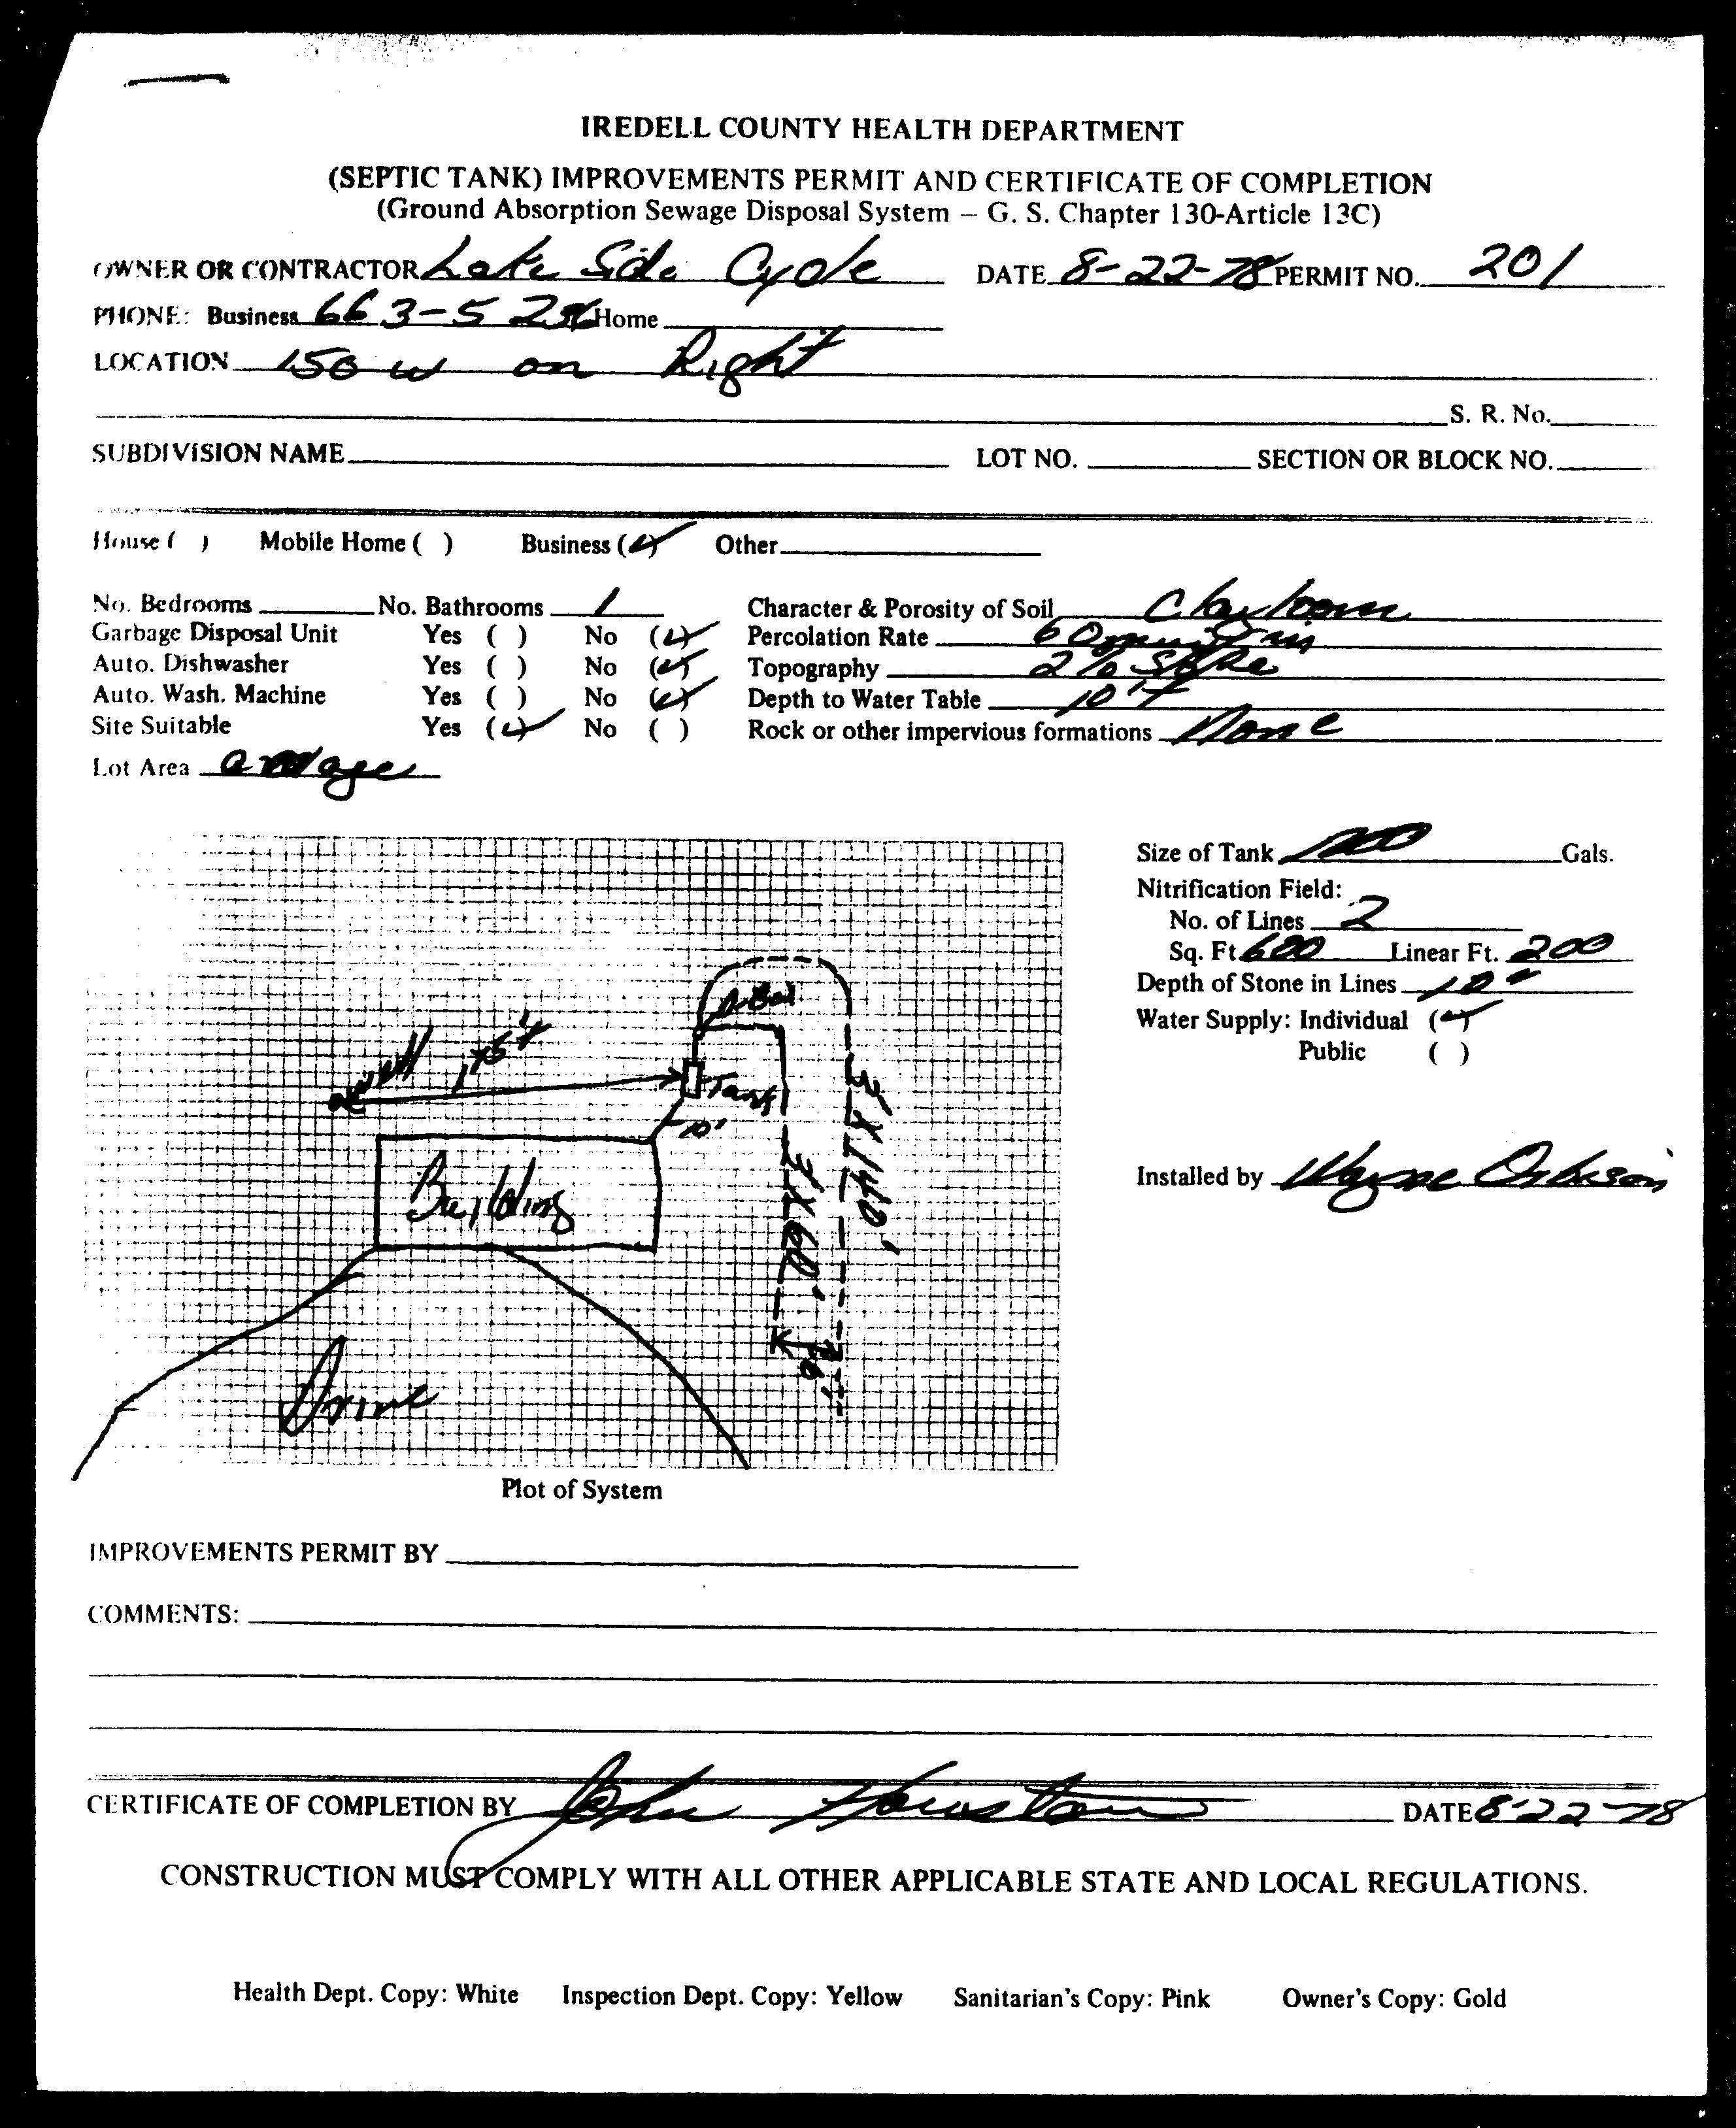 IREDELL COUNTY HEALTH DEPARTMENT
(SEPTIC TANK) IMPROVEMENTS PERMIT AND CERTIFICATE OF COMPLETION
(Ground Absorption Sewage Disposal System – G. S. Chapter 130-Article 13C)
OWNER OR CONTRACTOR Lake Side Cycle DATE 8-22-78 PERMIT NO. 201
PHONE: Business 663-5 Home
LOCATION 150 W on Right
S. R. No.
SUBDIVISION NAME LOT NO. SECTION OR BLOCK NO.
House ( ) Mobile Home ( ) Business (✓) Other
No. Bedrooms No. Bathrooms 1 Character & Porosity of Soil Clay loam
Garbage Disposal Unit Yes ( ) No (✓) Percolation Rate 60
Auto. Dishwasher Yes ( ) No (✓) Topography 2% Slope
Auto. Wash. Machine Yes ( ) No (✓) Depth to Water Table 10'+
Site Suitable Yes (✓) No ( ) Rock or other impervious formations None
Lot Area
Size of Tank Gals.
Nitrification Field:
No. of Lines 2
Sq. Ft. 600 Linear Ft. 200
Depth of Stone in Lines
Water Supply: Individual (✓)
Public ( )
well
Tank
10'
Building
3 X 60'
3 X 140'
Drive
Installed by Wayne
Plot of System
IMPROVEMENTS PERMIT BY
COMMENTS:
CERTIFICATE OF COMPLETION BY John Houston DATE 8-22-78
CONSTRUCTION MUST COMPLY WITH ALL OTHER APPLICABLE STATE AND LOCAL REGULATIONS.
Health Dept. Copy: White Inspection Dept. Copy: Yellow Sanitarian's Copy: Pink Owner's Copy: Gold